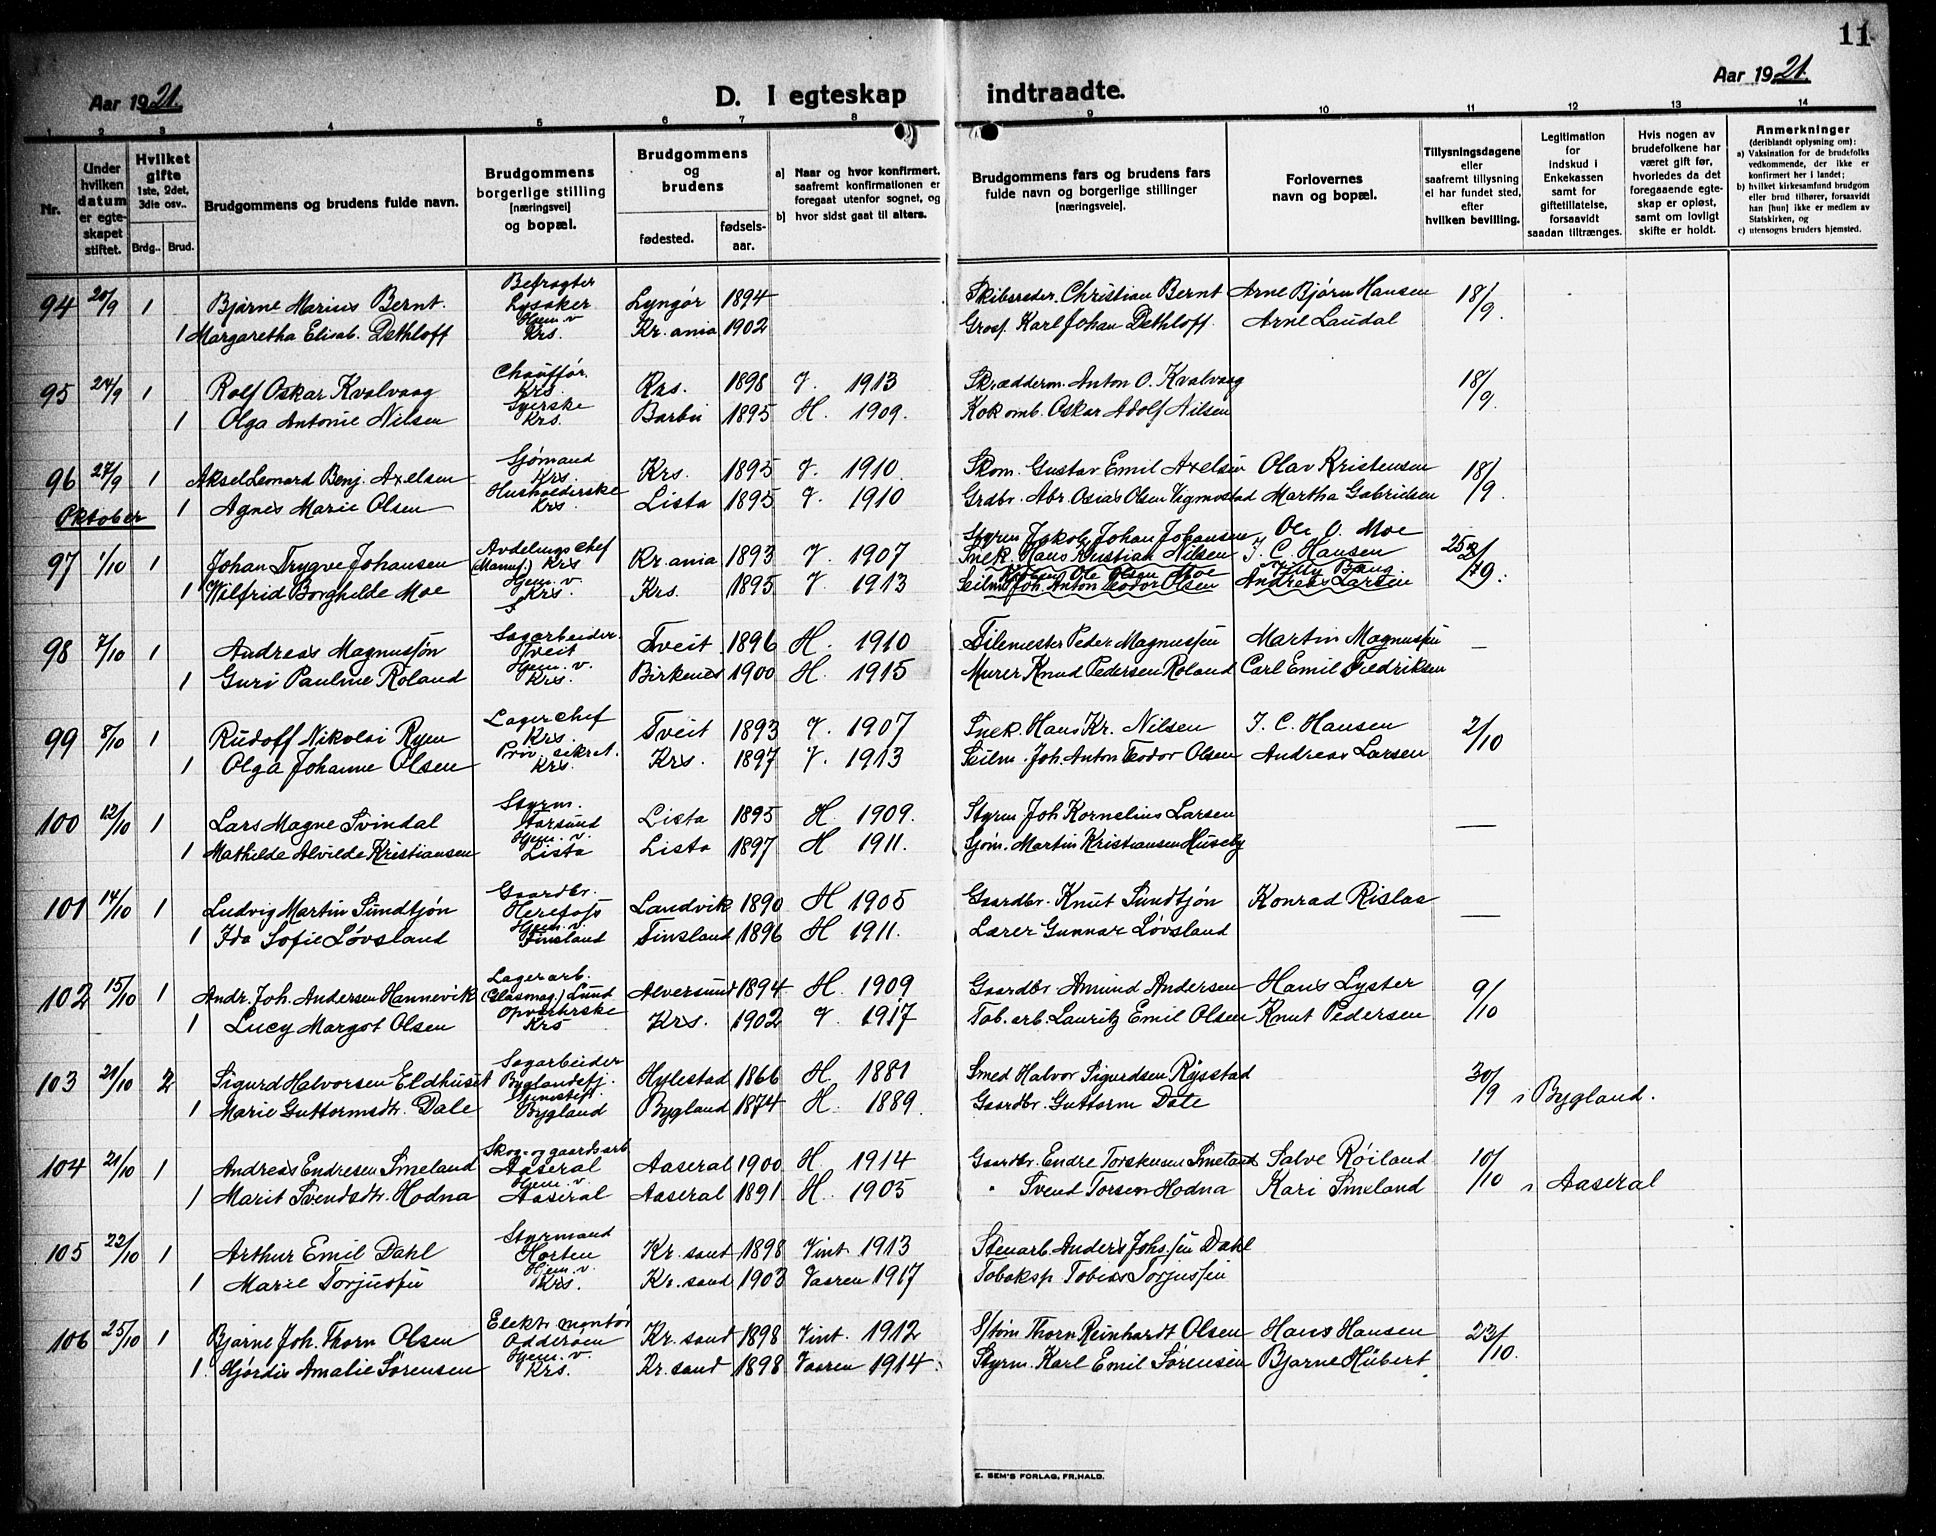 11
Aar 1921.
D. I egteskap indtraadte.
Aar 1921.
1 2 3 4 5 6 7 8 9 10 11 12 13 14
Nr.
Under hvilken datum er egteskapet stiftet.
Hvilket gifte 1ste, 2det, 3die osv..
Brdg.. Brud.
Brudgommens og brudens fulde navn.
Brudgommens borgerlige stilling [næringsvei] og bopæl.
Brudgommens og brudens
fødested. fødselsaar.
a) Naar og hvor konfirmert, saafremt konfirmationen er foregaat utenfor sognet, og
b) hvor sidst gaat til alters.
Brudgommens fars og brudens fars fulde navn og borgerlige stillinger [næringsveie].
Forlovernes navn og bopæl.
Tillysningsdagene eller saafremt tillysning ei har fundet sted, efter hvilken bevilling.
Legitimation for indskud i Enkekassen samt for giftetillatelse, forsaavidt saadan tiltrænges.
Hvis nogen av brudefolkene har været gift før, hvorledes da det foregaaende egteskap er opløst, samt om lovligt skifte er holdt.
Anmerkninger (deriblandt oplysning om):
a) Vaksination for de brudefolks vedkommende, der ikke er konfirmert her i landet;
b) hvilket kirkesamfund brudgom eller brud tilhører, forsaavidt han [hun] ikke er medlem av Statskirken, og
c) utensogns bruders hjemsted.
94 20/9 1 Bjarne Marius Bernt. Befragter Lysaker Lyngør 1894 Skibsreder. Christian Bernt Arne Bjørn Hansen 18/9
1 Margaretha Elisab. Dethloff Hjem. v Krs. Kr.ania 1902 Gros. Karl Johan Dethloff. Arne Laudal
95 24/9 1 Rolf Oskar Kvalvaag Chauffør. Krs. Krs. 1898 V. 1913 Skrædderm. Anton O. Kvalvaag 18/9
1 Olga Antonie Nilsen Syerske Krs. Barbu 1895 H. 1909. Kokomb. Oskar Adolf Nilsen
96 27/9 1 Aksel Leonard Benj. Axelsen Sjømand Krs. Krs. 1895 V. 1910. Skom. Gustav Emil Axelsen Olav Kristensen 18/9
1 Agnes Marie Olsen Husholderske Krs. Lista 1895 V 1910 Grdbr. Abr. Osias Olsen Vigmostad Martha Gabrielsen
Oktober
97 1/10 1 Johan Trygve Johansen Avdelingschef (Manuf.) Krs Kr.ania 1893 V. 1907 Styrm Jakob Johan Johansen Ole O. Moe 25/9
Snek. Hans Kristian Nilsen J. C. Hansen
1 Wilfrid Borghilde Moe Hjem. v. Krs. Krs. 1895 V 1913 Ole Olsen Moe
Seilm. Joh. Anton Teodor Olsen Andreas Larsen
98 7/10 1 Andreas Magnussøn Sagarbeider. Tveit Tveit 1896 H. 1910 Filemester Peder Magnussen Martin Magnussen —
1 Guri Pauline Roland Hjem. v. Krs. Birkenes 1900 H. 1915 Murer Knud Pedersen Roland Carl Emil Fredriksen
99 8/10 1 Rudolf Nikolai Ryen Lagerchef Krs. Tveit 1893 V. 1907 Snek. Hans Kr. Nilsen J. C. Hansen 2/10
1 Olga Johanne Olsen Priv. sekret. Krs. Krs. 1897 V. 1913 Seilm. Joh. Anton Teodor Olsen Andreas Larsen
100 12/10 1 Lars Magne Svindal Styrm. Farsund Lista 1895 H. 1909. Styrm Joh Kornelius Larsen —
1 Mathilde Alvilde Kristiansen Hjem. v. Lista Lista 1897 H 1911. Sjøm. Martin Kristiansen Huseby
101 14/10 1 Ludvig Martin Sundtjøn Gaardbr. Herefoss Landvik 1890 H 1905 Gaardbr. Knut Sundtjøn Konrad Rislaa —
1 Ida Sofie Løvsland Hjem. v. Finsland Finsland 1896 H 1911. Lærer Gunnar Løvsland
102 15/10 1 Andr. Joh. Andersen Hannevik Lagerarb. (Glasmag.) Lund Alversund 1894 H. 1909 Gaardbr Amund Andersen Hans Lyster 9/10
1 Lucy Margot Olsen Opvarterske Krs Krs. 1902 V. 1917 Tob.arb. Lauritz Emil Olsen Knut Pedersen
103 21/10 2 Sigurd Halvorsen Eldhuset Sagarbeider Byglandsfj. Hylestad 1866 H. 1881 Smed Halvor Sigurdsen Rysstad 30/9 i Bygland.
1 Marie Guttormsdtr. Dale Bygland Bygland 1874 H. 1889. Gaardbr. Guttorm Dale
104 21/10 1 Andreas Endresen Smeland Skog- og gaardsarb Aaseral Aaseral 1900 H. 1914 Gaardbr. Endre Torkelsen Smeland Salve Røiland 10/10 i Aaseral
1 Marit Svendsdtr. Hodna Hjem. v. Aaseral Aaseral 1891 H. 1905 " Svend Torsen Hodna Kari Smeland
105 22/10 1 Arthur Emil Dahl Styrmand Horten Kr.sand 1898 Vint. 1913 Stenarb. Anders Johs.sen Dahl
1 Marie Torjussen Hjem. v. Krs. Kr.sand 1903 Vaaren 1917 Tobaksp Tobias Torjussen
106 25/10 1 Bjarne Joh. Thorn Olsen Elektr. montør Odderøen Kr.sand 1898 Vint. 1912 Thorn Reinhardt Olsen Hans Hansen 23/10.
1. Hjørdis Amalie Sørensen Hjem. v. Krs. Kr.sand 1898 Vaaren 1914. Styrm. Karl Emil Sørensen Bjarne Hübert
E. SEM'S FORLAG, FR.HALD.